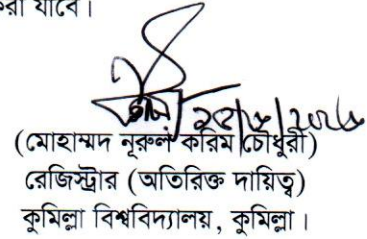 করা যাবে।
(মোহাম্মদ নূরুল করিম চৌধুরী)
রেজিস্ট্রার (অতিরিক্ত দায়িত্ব)
কুমিল্লা বিশ্ববিদ্যালয়, কুমিল্লা।